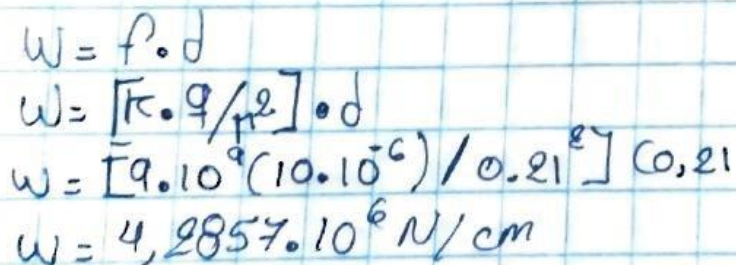 W = f.d
W = [K.q/r²].d
W = [9.10⁹(10.10⁻⁶)/0.21²] (0,21
W = 4,2857.10⁶ N/cm